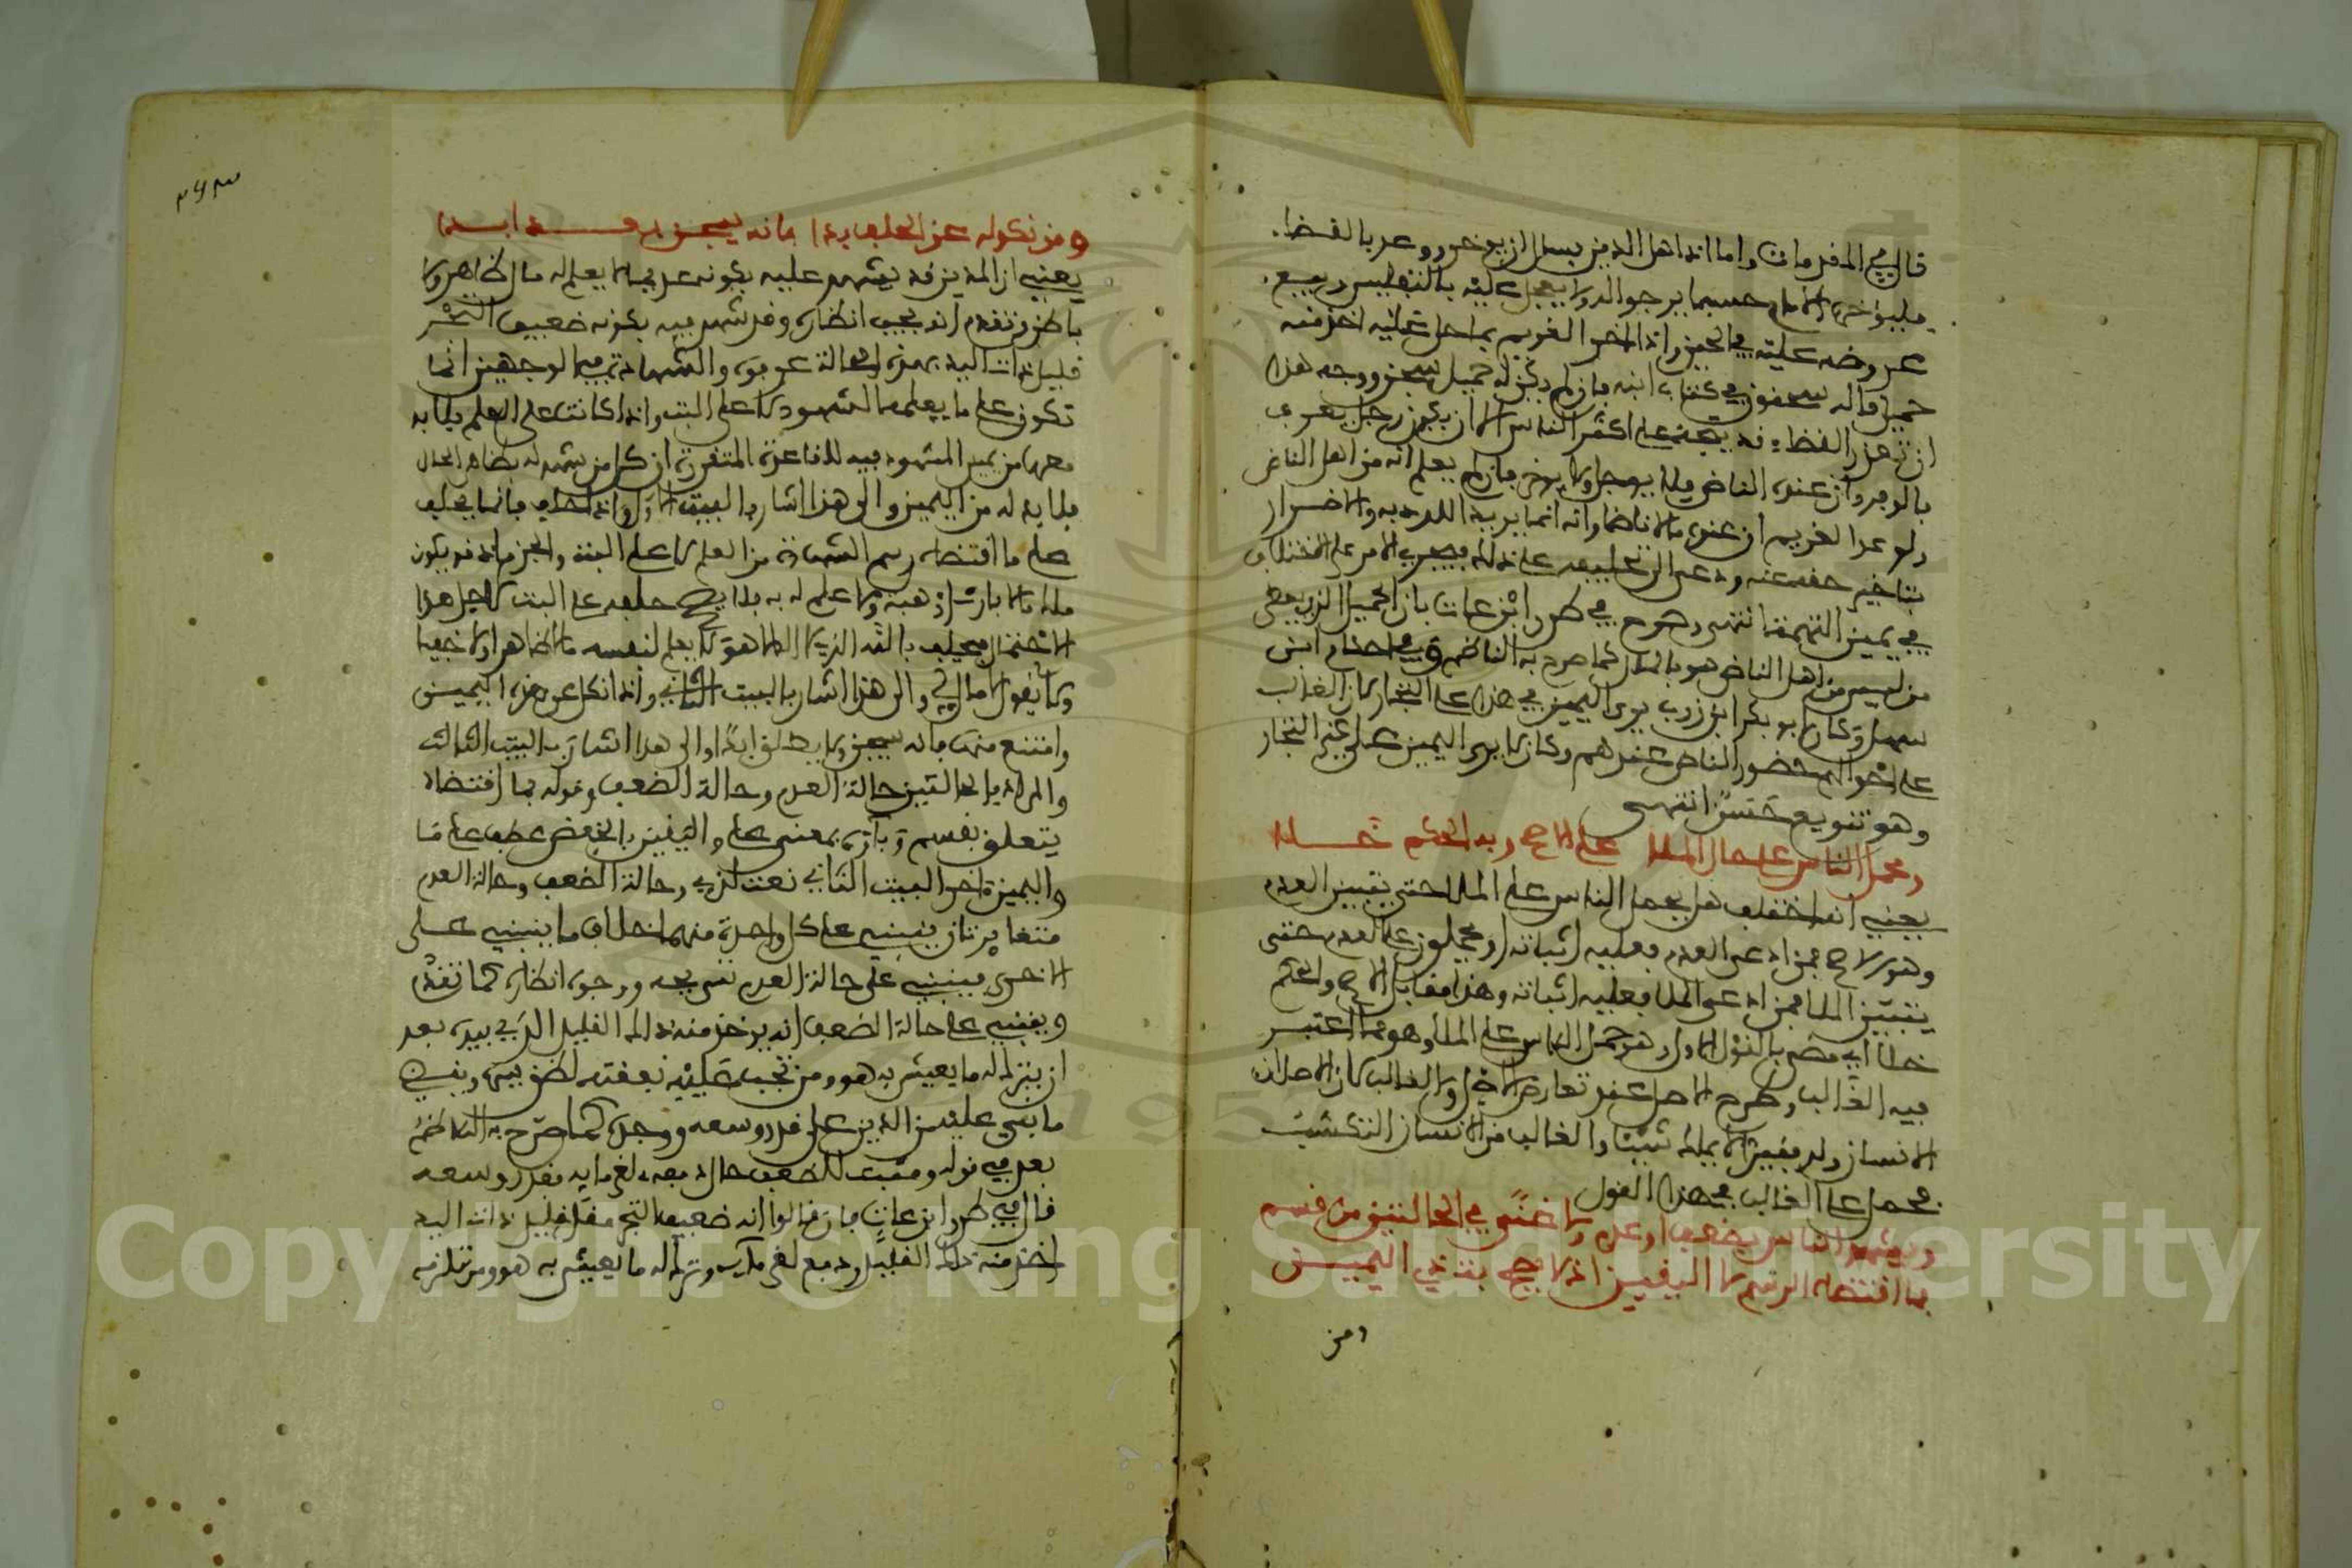 قال في المقدمات واما اذا اهل الدين يسئل ان يؤخر ووعد بالقضاء
فليؤخره الامام حسبما يرجو له ولا يعجل عليه بالتفليس وبيع
عروضه عليه في الحين واذا اخر الغريم بما حل عليه اخذ منه
حميل قاله سحنون في كتاب ابنه فان لم يكن له حميل سجن ووجه هذا
ان تعذر القضاء قد يتجه على اكثر الناس الا ان يكون رجل يعرف
بالوفر وان عنده الناض فلا يوجل ولا يوخر فان لم يعلم انه من اهل الناض
ولو عدا الغريم ان عنده مالا ناضا وانه انما يريد اللدد به والاضرار
بتاخير حقه عنه ودعى الى تحليفه على ذلك فيجري الامر على الاختلاف
في يمين التهمة انتهى وهو ح في طرر ابن عات بان الحميل الذي يعطي
من ليس من اهل الناض هو بالمال كما صرح به الناظم وفي احكام ابن
سهل وكان ابو بكر ابن زرب يرى اليمين في هذا على التجار لان الغالب
على احوالهم حضور الناض عندهم وكان لا يرى اليمين على غير التجار
وهو تنويع حسن انتهى
ومحمل الناس على حال الملا على الاصح وبه الحكم خلا
يعني انه اختلف هل يحمل الناس على الملا حتى يتبين العدم
وهو الاصح فمن ادعى العدم فعليه اثباته او محملون على العدم حتى
يتبين الملا فمن ادعى الملا فعليه اثباته وهذا مقابل الاصح والحكم
خلا اي مضى بالقول الاول وهو حمل الناس على الملا وهو مما اعتبر
فيه الغالب وطرح الاصل عند تعارض الاصل والغالب لان الاصل ان
الانسان ولد فقيرا لا يملك شيئا والغالب من الانسان التكسب
فحمل على الغالب في هذا القول
ويشهد الناس بضعف او عدم ولا غنى في الحالتين من قسم
بما اقتضاه الرسم لا اليقين اذ لا يصح بت ذي اليمين
ومن
ومن نكوله عن الحلف بدا فانه يسجن بعد ابدا
يعني ان المدين قد يشهد عليه بكونه عديما لا يعلم له مال ظاهر ولا
باطن وتقدم انه يجب انظاره وقد شهد فيه بكونه ضعيف التجر
قليل ذات اليد بهذه الحالة عرفوه والشهادة في الوجهين انما
تكون على ما يعلمه الشهود لا على البت واذا كانت على العلم فلا بد
معها من يمين المشهود فيه للقاعدة المتقررة ان كل من شهد له بظاهر الحال
فلا بد له من اليمين والى هذا اشار بالبيت الاول واذا حلف فانما يحلف
على ما اقتضاه رسم الشهادة من العلم لا على البت والجزم اذ قد يكون
ملك مالا بارث او هبة ولا علم له به فلا يصح حلفه على البت لاجل هذا
الاحتمال فيحلف بالله الذي لا اله الا هو لا يعلم لنفسه مالا ظاهرا ولا خفيا
ولا يقول لا مال لي والى هذا اشار بالبيت الثاني واذا نكل عن هذه اليمين
وامتنع منها فانه يسجن ولا يطلق ابدا والى هذا اشار بالبيت الثالث
والمراد بالحالتين حالة العدم وحالة الضعف وقوله بما اقتضاه
يتعلق بقسم وباؤه بمعنى على واليقين بالخفض عطف على ما
واليمين اخر البيت الثاني نعت لذي وحالة الضعف وحالة العدم
متغايرتان ينبني على كل واحدة منهما خلاف ما ينبني على
الاخرى فينبني على حالة العدم تسريحه ووجوب انظاره كما تقدم
وينبني على حالة الضعف انه يؤخذ منه ذلك القليل الذي بيده بعد
ان يترك له ما يعيش به هو ومن تجب عليه نفقته لضعف بيته ويقسط
ما بقي عليه من الدين على قدر وسعه ووجده كما صرح به الناظم
بعد في قوله ومثبت للضعف حال دفعه لغرمائه بقدر وسعه
قال في طرر ابن عات فان قالوا انه ضعيف التجر مقل قليل ذات اليد
اخذ منه ذلك القليل ودفع لغرمائه وترك له ما يعيش به هو ومن تلزمه